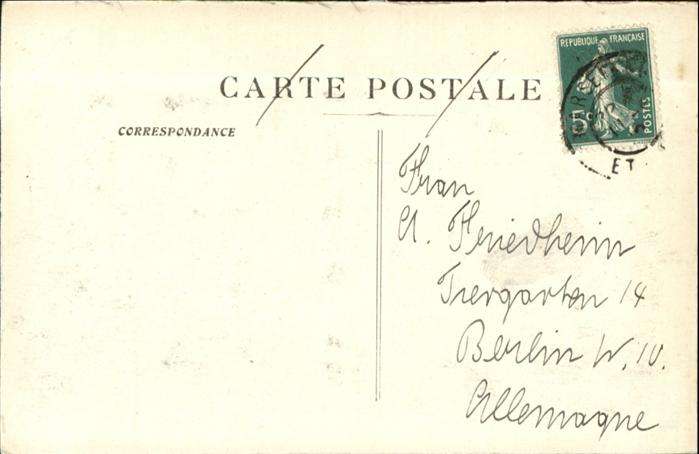 CARTE POSTALE
REPUBLIQUE FRANÇAISE
POSTES
5c
MARSEILLE
ET
CORRESPONDANCE
Frau
A. Friedheim
Tiergarten 14
Berlin W. 10.
Allemagne